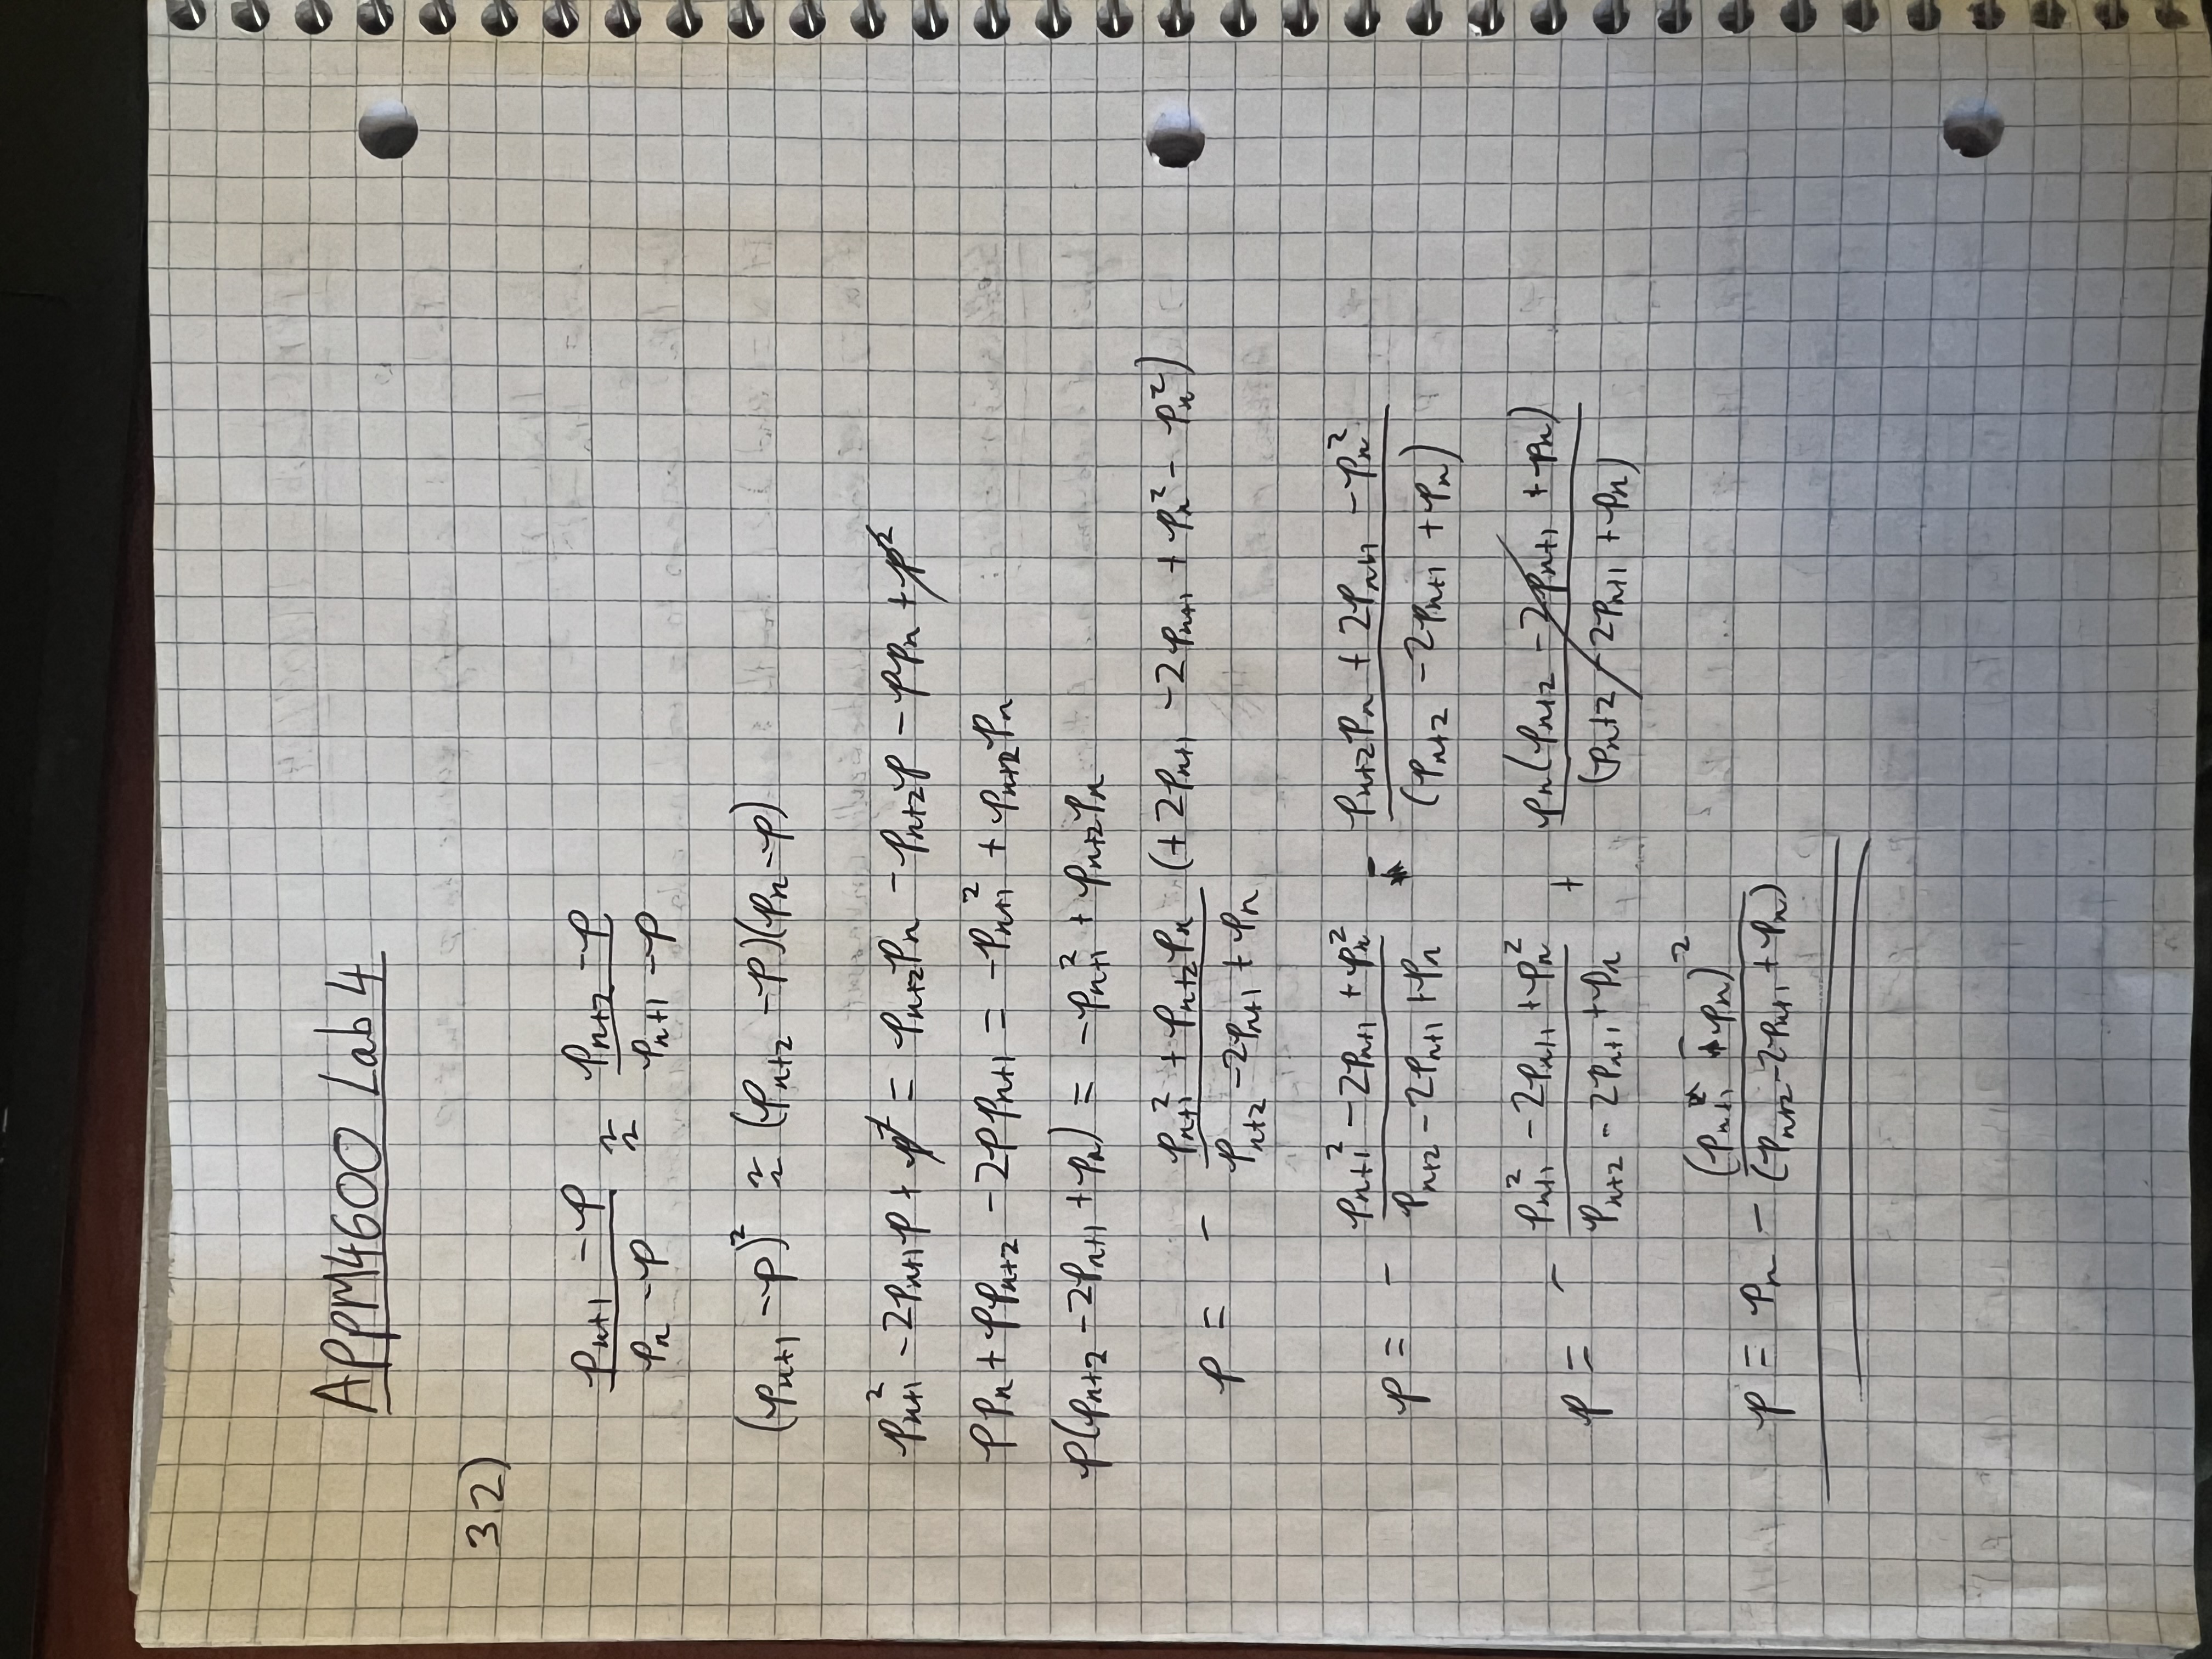 APPM4600 Lab 4
3.2)
(p_{n+1} - p)/(p_n - p) ≈ (p_{n+2} - p)/(p_{n+1} - p)
(p_{n+1} - p)^2 ≈ (p_{n+2} - p)(p_n - p)
p_{n+1}^2 - 2p_{n+1}p + p^2 = p_{n+2}p_n - p_{n+2}p - pp_n + p^2
pp_n + pp_{n+2} - 2pp_{n+1} = -p_{n+1}^2 + p_{n+2}p_n
p(p_{n+2} - 2p_{n+1} + p_n) = -p_{n+1}^2 + p_{n+2}p_n
p = - (p_{n+1}^2 + p_{n+2}p_n)/(p_{n+2} - 2p_{n+1} + p_n) (+ 2p_{n+1} - 2p_{n+1} + p_n^2 - p_n^2)
p = - (p_{n+1}^2 - 2p_{n+1} + p_n^2)/(p_{n+2} - 2p_{n+1} + p_n) - (p_{n+2}p_n + 2p_{n+1} - p_n^2)/(p_{n+2} - 2p_{n+1} + p_n)
p = - (p_{n+1}^2 - 2p_{n+1} + p_n^2)/(p_{n+2} - 2p_{n+1} + p_n) + p_n(p_{n+2} - 2p_{n+1} + p_n)/(p_{n+2} - 2p_{n+1} + p_n)
p = p_n - (p_{n+1} - p_n)^2/(p_{n+2} - 2p_{n+1} + p_n)